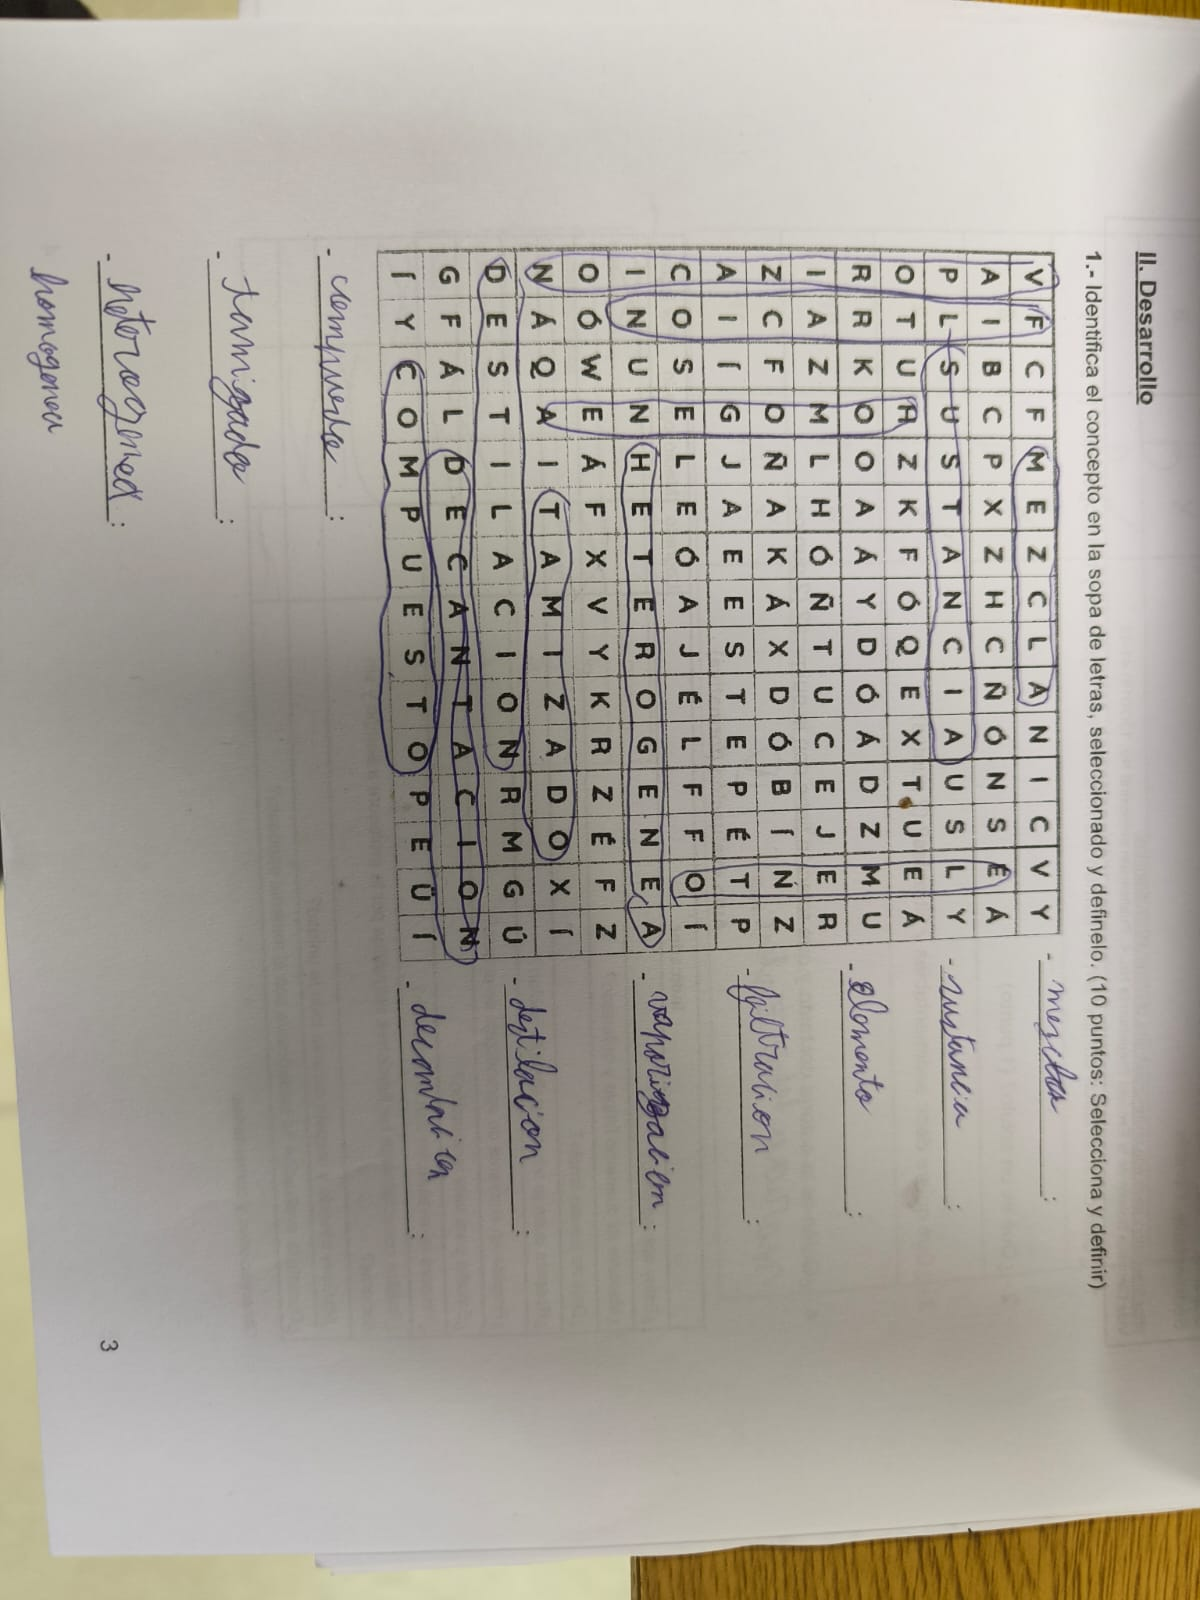 II. Desarrollo
1.- Identifica el concepto en la sopa de letras, seleccionado y definelo. (10 puntos: Selecciona y definir)
V F C F M E Z C L A N I C V Y
A I B C P X Z H C Ñ Ó N S É Á
P L S U S T A N C I A U S L Y
O T U H Z K F Ó Q E X T U E Á
R R K O O A Á Y D Ó Á D Z M U
I A Z M L H Ó Ñ T U C E J E R
Z C F O Ñ A K Á X D Ó B Í N Z
A I Í G J A E E S T E P É T P
C O S E L E Ó A J É L F F O Í
I N U N H E T E R O G E N E A
O Ó W E Á F X V Y K R Z É F Z
N Á Q A I T A M I Z A D O X Í
D E S T I L A C I O N R M G Ú
G F Á L D E C A N T A C I O N
Í Y C O M P U E S T O P E Ü Í
- mezcla :
- sustancia :
- elemento :
- filtracion :
- vaporizacion :
- destilacion :
- decantacion :
- compuesto :
- tamizado :
- heterogenea :
homogenea
3